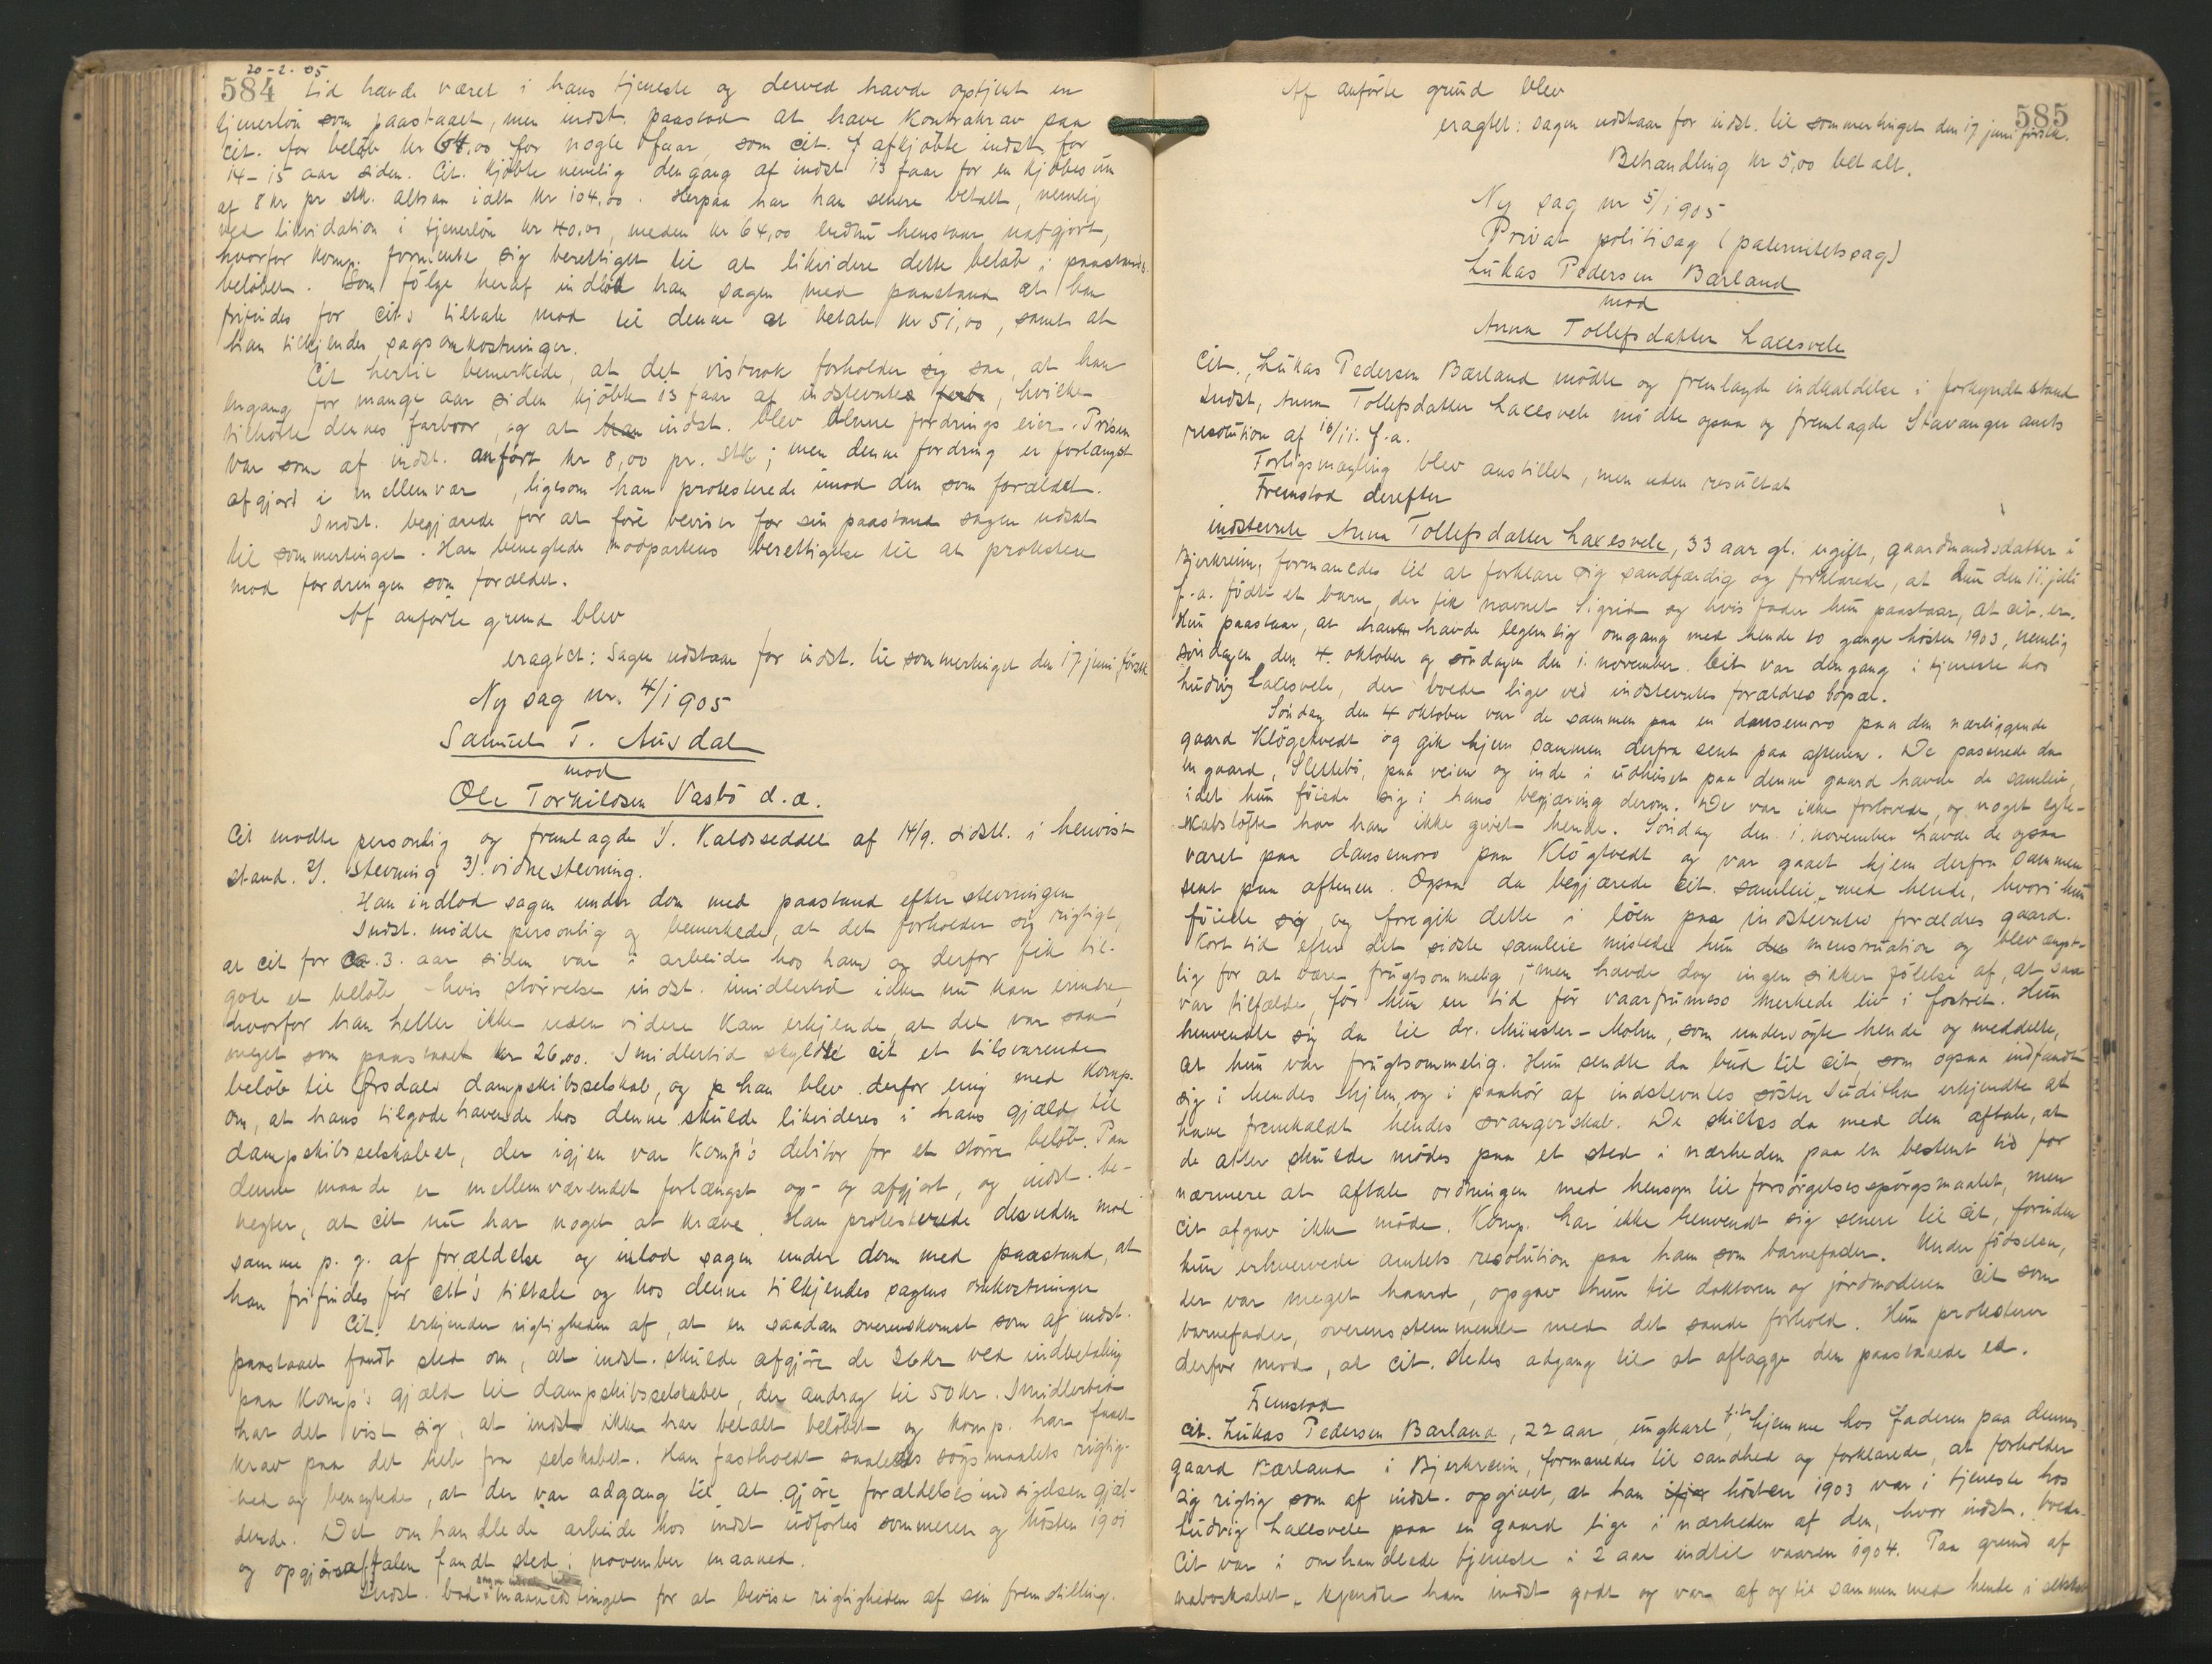 20-2.05
584 tid havde været i hans tjeneste og derved havde optjent en
tjenerløn som paastaaet, men indst. paastod at have kontrakrav paa
cit. for beløb kr 64,00 for nogle faar, som cit. afkjøbte indst. for
14-15 aar siden. Cit. kjøbte nemlig dengang af indst 13 faar for en kjøbesum
af 8 kr pr stk. altsaa ialt kr 104,00. Herpaa har han senere betalt, nemlig
ved likvidation i tjenerløn kr 40,00, meden kr 64,00 endnu henstaar uafgjort,
hvorfor komp. formente sig berettiget til at likvidere dette beløb i paastands-
beløbet. Som følge heraf indlod han sagen med paastand at han
frifindes for cit's tiltale mod til denne at betale kr 51,00, samt at
han tilkjendes sagsomkostninger.
Cit hertil bemerkede, at det vistnok forholder sig saa, at han
engang for mange aar siden kjøbte 13 faar af indstevntes, hvilke
tilhørte dennes farbror, og at indst. blev denne fordrings eier. Prisen
var som af indst. anført kr 8,00 pr. stk; men denne fordring er forlængst
afgjord i mellemvær, ligesom han protesterede imod den som forældet.
Indst. begjærede for at føre beviser for sin paastand sagen udsat
til sommertinget. Han benegtede modpartens berettigelse til at protestere
mod fordringen som forældet.
Af anførte grund blev
eragtet: Sagen udstaar for indst. til sommertinget den 17 juni førstk.
Ny sag nr. 4/1905
Samuel T. Ausdal
mod
Ole Torkildsen Vasbø d.æ.
Cit mødte personlig og fremlagde 1/. Kaldsseddel af 14/9. sidstl. i henvist
stand. 2/. stevning 3/. vidnestevning.
Han indlod sagen under dom med paastand efter stevningen
Indst. mødte personlig og bemerkede, at det forholder sig rigtigt,
at cit for ca. 3. aar siden var i arbeide hos ham og derfor fik til-
gode et beløb, hvis størrelse indst. imidlertid ikke nu kan erindre,
hvorfor han heller ikke uden videre kan erkjende, at det var saa
meget som paastaaet kr 26,00. Imidlertid skyldte cit et tilsvarende
beløb til Ørsdals dampskibsselskab, og han blev derfor enig med komp.
om, at hans tilgodehavende hos denne skulde likvideres i hans gjæld til
dampskibsselskabet, der igjen var komp's debitor for et større beløb. Paa
denne maade er mellemværendet forlængst op- og afgjort, og indst. be-
negter, at cit nu har noget at kræve. Han protesterede desuden mod
samme p. g. af forældelse og inlod sagen under dom med paastand, at
han frifindes for citt's tiltale og hos denne tilkjendes sagens omkostninger
Cit. erkjender rigtigheden af, at en saadan overenskomst som af indst.
paastaaet fandt sted om, at indst. skulde afgjøre de 26kr ved indbetaling
paa komp's gjæld til dampskibsselskabet, der androg til 50 kr. Imidlertid
har det vist sig, at indst ikke har betalt beløbet og komp. har faaet
krav paa det hele fra selskabet. Han fastholdt saaledes søgsmaalets rigtig-
hed og benegtede, at der var adgang til at gjøre forældelsesindsigelsen gjæl-
dende. Det omhandlede arbeide hos indst udførtes sommeren og høsten 1901
og opgjørsaftalen fandt sted i november maaned.
Indst. bad maanedstinget for at bevise rigtigheden af sin fremstilling.
585
Af anførte grund blev
eragtet: sagen udstaar for indst. til sommertinget den 17 juni førstk.
Behandling kr 5,00 betalt.
Ny sag nr 5/1905
Privat politisag (paternitetssag)
Lukas Pedersen Bærland
mod
Anna Tollefsdatter Laxesvele
Cit., Lukas Pedersen Bærland mødte og fremlagde indkaldelse i forkyndt stand
Indst, Anna Tollefsdatter Laxesvele mødte ogsaa og fremlagde Stavanger amts
resolution af 10/11. f.a.
Forligsmægling blev anstillet, men uden resultat
Fremstod derefter
indstevnte Anna Tollefsdatter Laxesvele, 33 aar gl. ugift, gaardmandsdatter i
Bjerkreim, formanedes til at forklare sig sandfærdig og forklarede, at hun den 11. juli
f.a. fødte et barn, der fik navnet Sigrid og hvis fader hun paastaar, at cit. er.
Hun paastaar, at han havde legemlig omgang med hende to gange høsten 1903, nemlig
søndagen den 4. oktober og søndagen den 1. november. Cit var dengang i tjeneste hos
Ludvig Laxesvele, der boede lige ved indstevntes forældres bopæl.
Søndag den 4 oktober var de sammen paa en dansemoro paa den nærliggende
gaard Kløgetvedt og gik hjem sammen derfra sent paa aftenen. De passerede da
en gaard, Slettebø, paa veien og inde i udhuset paa denne gaard havde de samleie,
idet hun føiede sig i hans begjæring derom. De var ikke forlovede, og noget egte-
skabsløfte har han ikke givet hende. Søndag den 1. november havde de ogsaa
været paa dansemoro paa Kløgtvedt og var gaaet hjem derfra sammen
sent paa aftenen. Ogsaa da begjærede cit. samleie med hende, hvori hun
føiede sig, og foregik dette i løen paa indstevntes forældres gaard.
Kort tid efter det sidste samleie mistede hun menstruation og blev ængst-
lig for at være frugtsommelig, men havde dog ingen sikker følelse af, at saa
var tilfælde, før hun en tid før vaarfrumess merkede liv i fostret. Hun
henvendte sig da til dr. Münster-Mohn, som undersøgte hende og meddelte,
at hun var frugtsommelig. Hun sendte da bud til cit som ogsaa indfandt
sig i hendes hjem, og i paahør af indstevntes søster Juditha erkjendte at
have fremkaldt hendes svangerskab. De skiltes da med den aftale, at
de atter skulde mødes paa et sted i nærheden paa en bestemt tid for
nærmere at aftale ordningen med hensyn til forsørgelsesspørgsmaalet, men
cit afgav ikke møde. Komp. har ikke henvendt sig senere til cit, forinden
hun erhvervede amtets resolution paa ham som barnefader. Under fødselen,
der var meget haard, opgav hun til doktoren og jordmoderen cit som
barnefader, overensstemmende med det sande forhold. Hun protesterer
derfor mod, at cit. stedes adgang til at aflægge den paastaaede ed.
Fremstod
cit. Lukas Pedersen Bærland, 22 aar, ungkarl, hjemme hos faderen paa dennes
gaard Bærland i Bjerkreim, formanedes til sandhed og forklarede, at forholder
sig rigtig som af indst. opgivet, at han høsten 1903 var i tjeneste hos
Ludvig Laxesvele paa en gaard lige i nærheden af den, hvor indst. boede.
Cit var i omhandlede tjeneste i 2 aar indtil vaaren 1904. Paa grund af
naboskabet kjendte han indst godt og var af og til sammen med hende i selskab